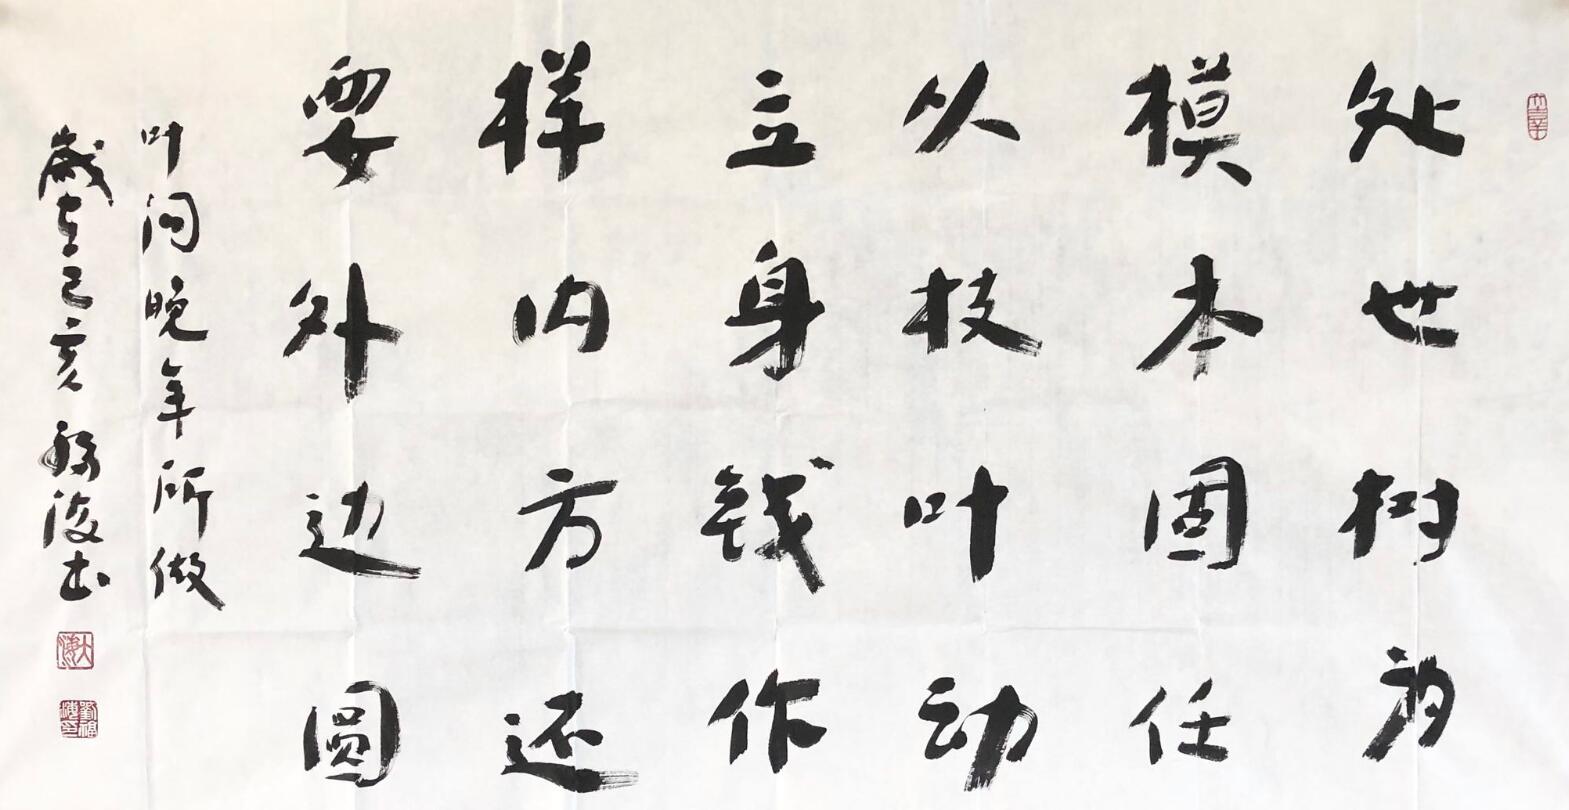 处世树为
模本固任
从枝叶动
立身钱作
样内方还
要外边圆
叶问晚年所做
岁在己亥 福海书